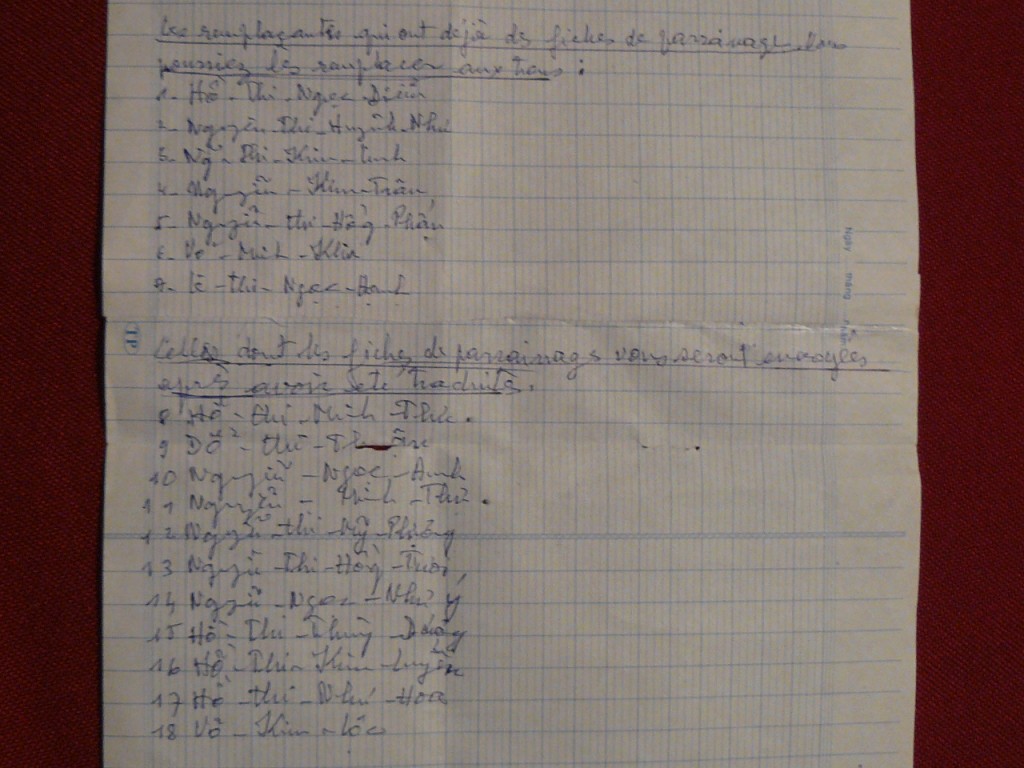 Les remplaçantes qui ont déjà des fiches de parrainage. Vous
pourriez les remplacer aux trous :
1- Hồ - Thi - Ngọc Diễm
2- Nguyễn - Thi - Huỳnh - Như
3- Ngô - Thi - Kim - Linh
4- Nguyễn - Kim - Trân
5- Nguyễn - thi - Hồng - Phấn
6- Võ - Minh -
7- Lê - thi - Ngọc - Oanh
Ngày tháng năm
TP
Celles dont les fiches de parrainage vous seront envoyées
après avoir été traduites.
8 Hồ - thi - Minh - Thư.
9 Đỗ - thi -
10 Nguyễn - Ngọc - Anh
11 Nguyễn - Minh - Thư.
12 Nguyễn - thi - Mỹ - Phụng
13 Nguyễn - Thi - Hồng - Tươi
14 Nguyễn - Ngọc - Như ý
15 Hồ - Thi - Thùy - Dương
16 Hồ - Thi - Kim - Luyến
17 Hồ - thi - Như - Hoa
18 Võ - Kim - Lộc